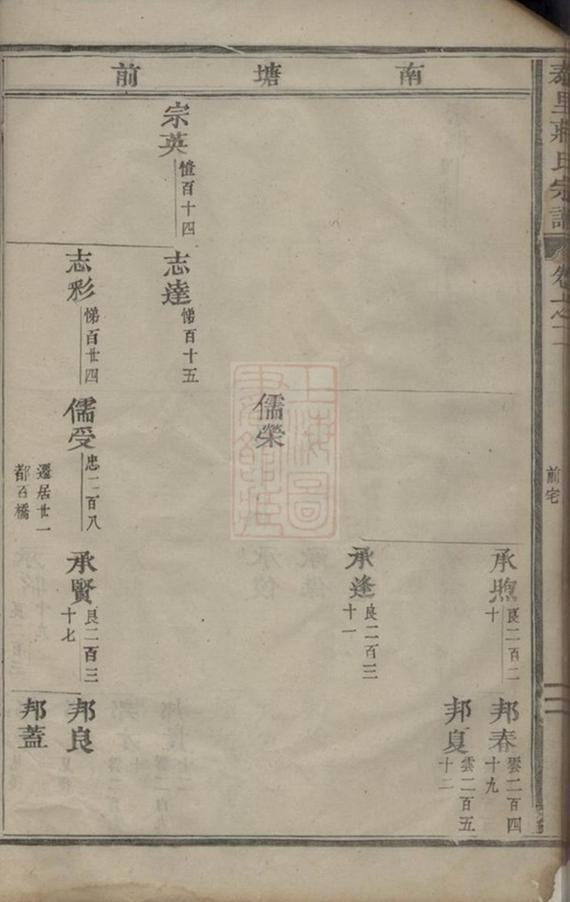 南塘前
宗英
愷百十四
志達
悌百十五
志彩
悌百廿四
儒榮
儒受
忠二百八
遷居廿一
都百橋
承煦
良二百二
十
承逢
良二百三
十一
承賢
良二百三
十七
邦春
雲二百四
十九
邦夏
雲二百五
十二
邦良
邦蓋
里蔣氏宗譜
卷
前宅
上海圖
書館藏